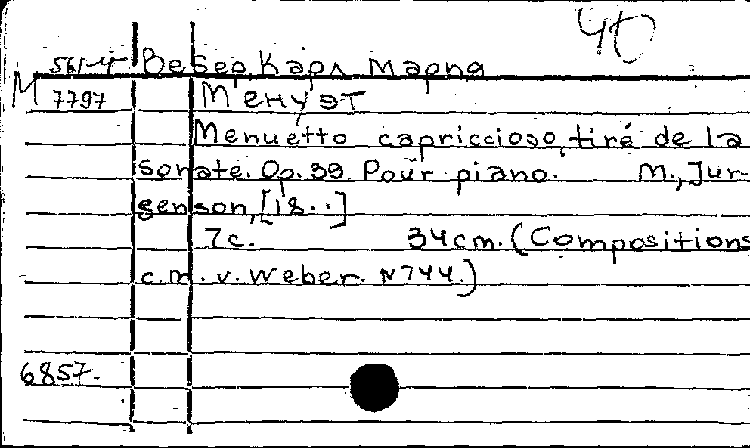 40
561-4 Вебер Карл Мария
М 7797 Менуэт
Menuetto capriccioso, tiré de la
sonate. Op. 39 Pour piano. M., Jur-
genson, [18..]
7 с. 34 cm. (Compositions
c.m. v. Weber. N 744.)
6857.